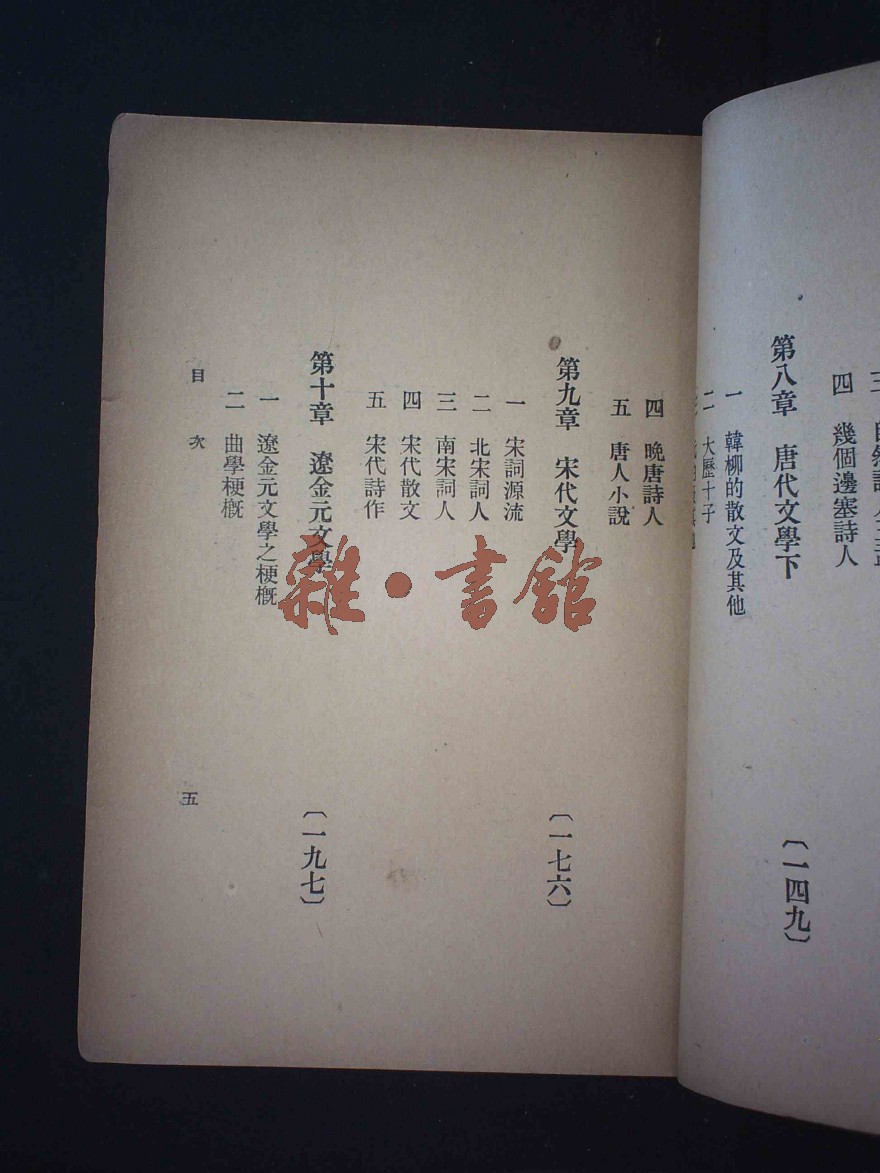 四　幾個邊塞詩人
第八章　唐代文學下　〔一四九〕
一　韓柳的散文及其他
二　大歷十子
四　晚唐詩人
五　唐人小說
第九章　宋代文學　〔一七六〕
一　宋詞源流
二　北宋詞人
三　南宋詞人
四　宋代散文
五　宋代詩作
第十章　遼金元文學　〔一九七〕
一　遼金元文學之梗概
二　曲學梗概
目次　五
雜·書館